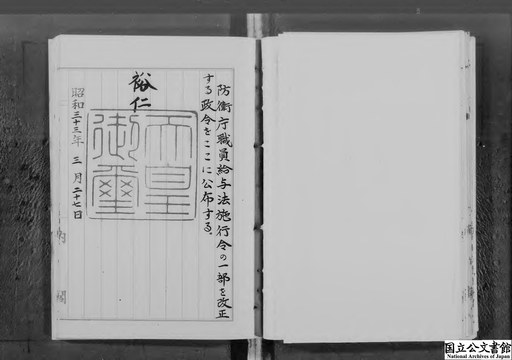 防衛庁職員給与法施行令の一部を改正
する政令をここに公布する。
裕仁
天皇
御璽
昭和三十三年三月二十七日
内閣
国立公文書館
National Archives of Japan